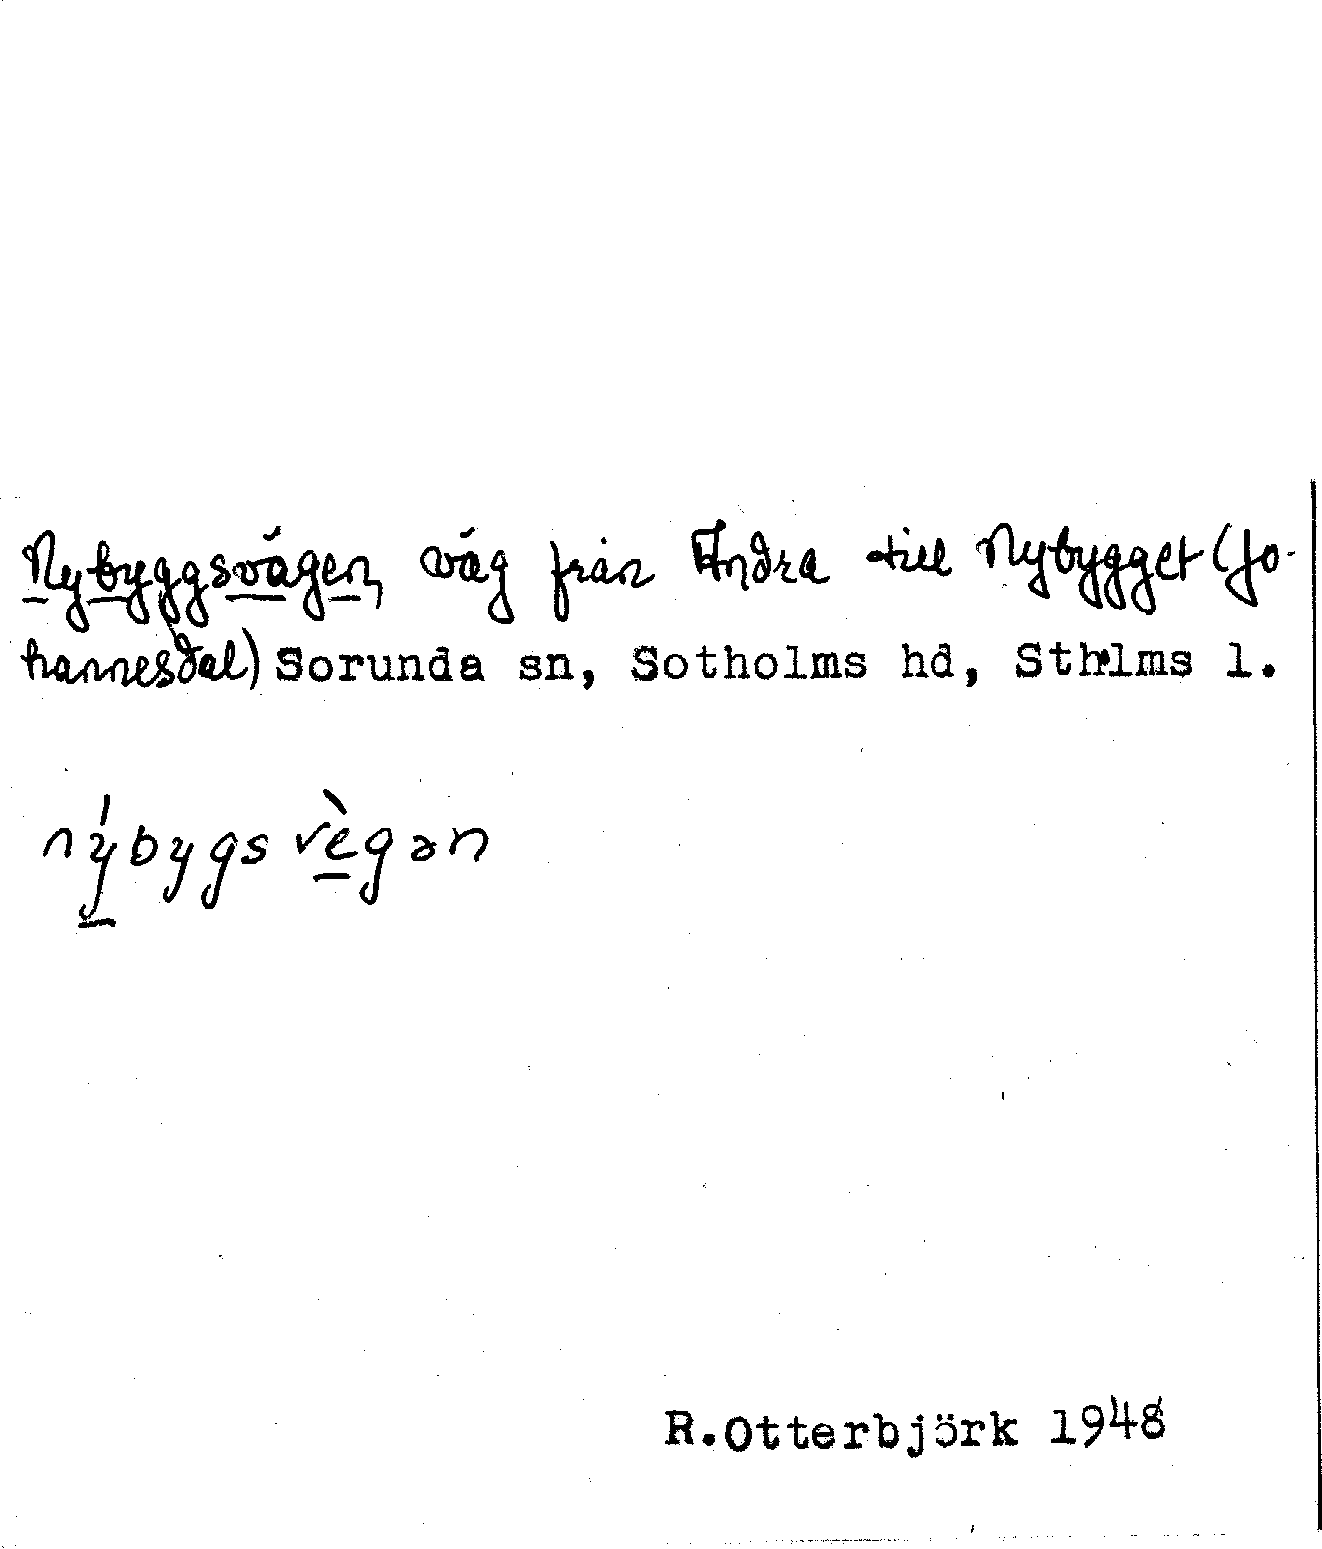 Nybyggsvägen, väg från Ändra till Nybygget (Jo-
hannesdal) Sorunda sn, Sotholms hd, Sthlms l.
nýbygsvègən
R.Otterbjörk 1948